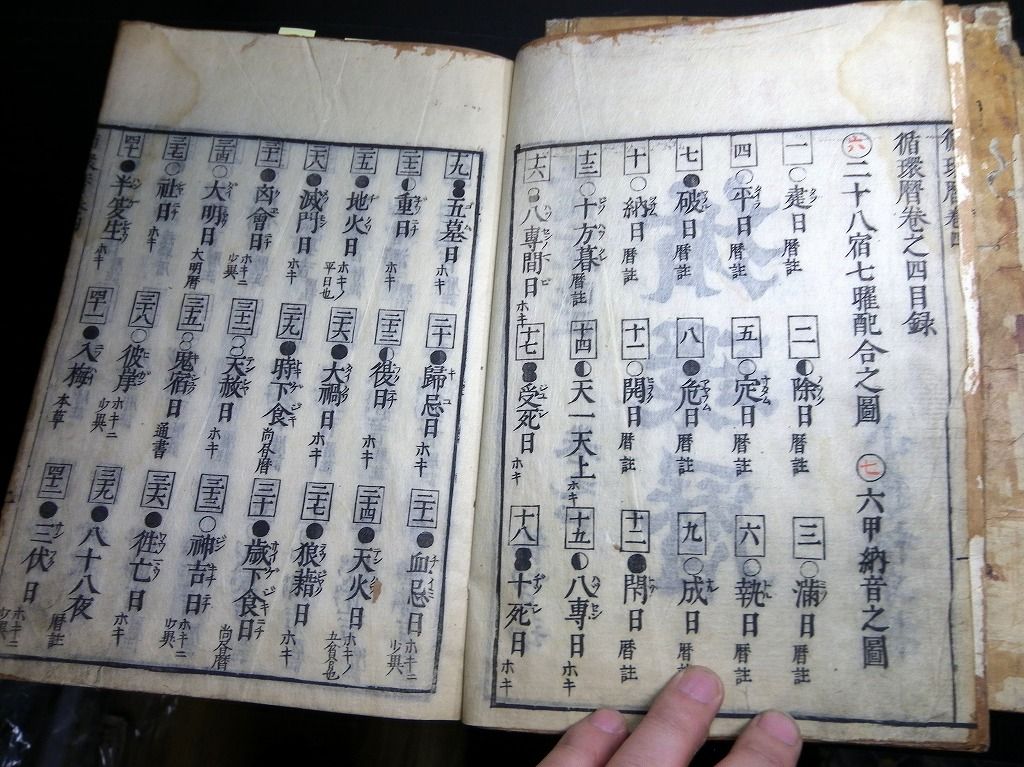 循環暦巻之四目録
六 二十八宿七曜配合之圖 七 六甲納音之圖
一 ○建日 暦註 二 ○除日 暦註 三 ○滿日 暦註
四 ○平日 暦註 五 ○定日 暦註 六 ○執日 暦註
七 ●破日 暦註 八 ●危日 暦註 九 ○成日 暦註
十 ○納日 暦註 十一 ○開日 暦註 十二 ●閉日 暦註
十三 ○十方暮 暦註 十四 ◐天一天上 ホキ 十五 ◐八專日 ホキ
十六 八專間日 ホキ 十七 受死日 ホキ 十八 十死日 ホキ
十九 五墓日 ホキ 二十 ●歸忌日 ホキ 二十一 ●血忌日 ホキニ少異
二十二 ◐重日 ホキ 二十三 ◐復日 ホキ 二十四 ●天火日 ホキノ五貧日也
二十五 ●地火日 ホキノ平日也 二十六 ●大禍日 ホキ 二十七 ●狼藉日 ホキ
二十八 ●滅門日 ホキ 二十九 ●時下食 尚㫪暦 三十 ●歳下食日 尚㫪暦
三十一 ●凶會日 ホキニ少異 三十二 ○天赦日 ホキ 三十三 ○神吉日 ホキニ少異
三十四 ○大明日 大明暦 三十五 ○鬼宿日 通書 三十六 ●往亡日 ホキ
三十七 ○社日 ホキ 三十八 ○彼岸 ホキニ少異 三十九 ●八十八夜 暦註
四十 ●半夏生 ホキ 四十一 ●入梅 本草 四十二 ●三伏日 ホキニ少異